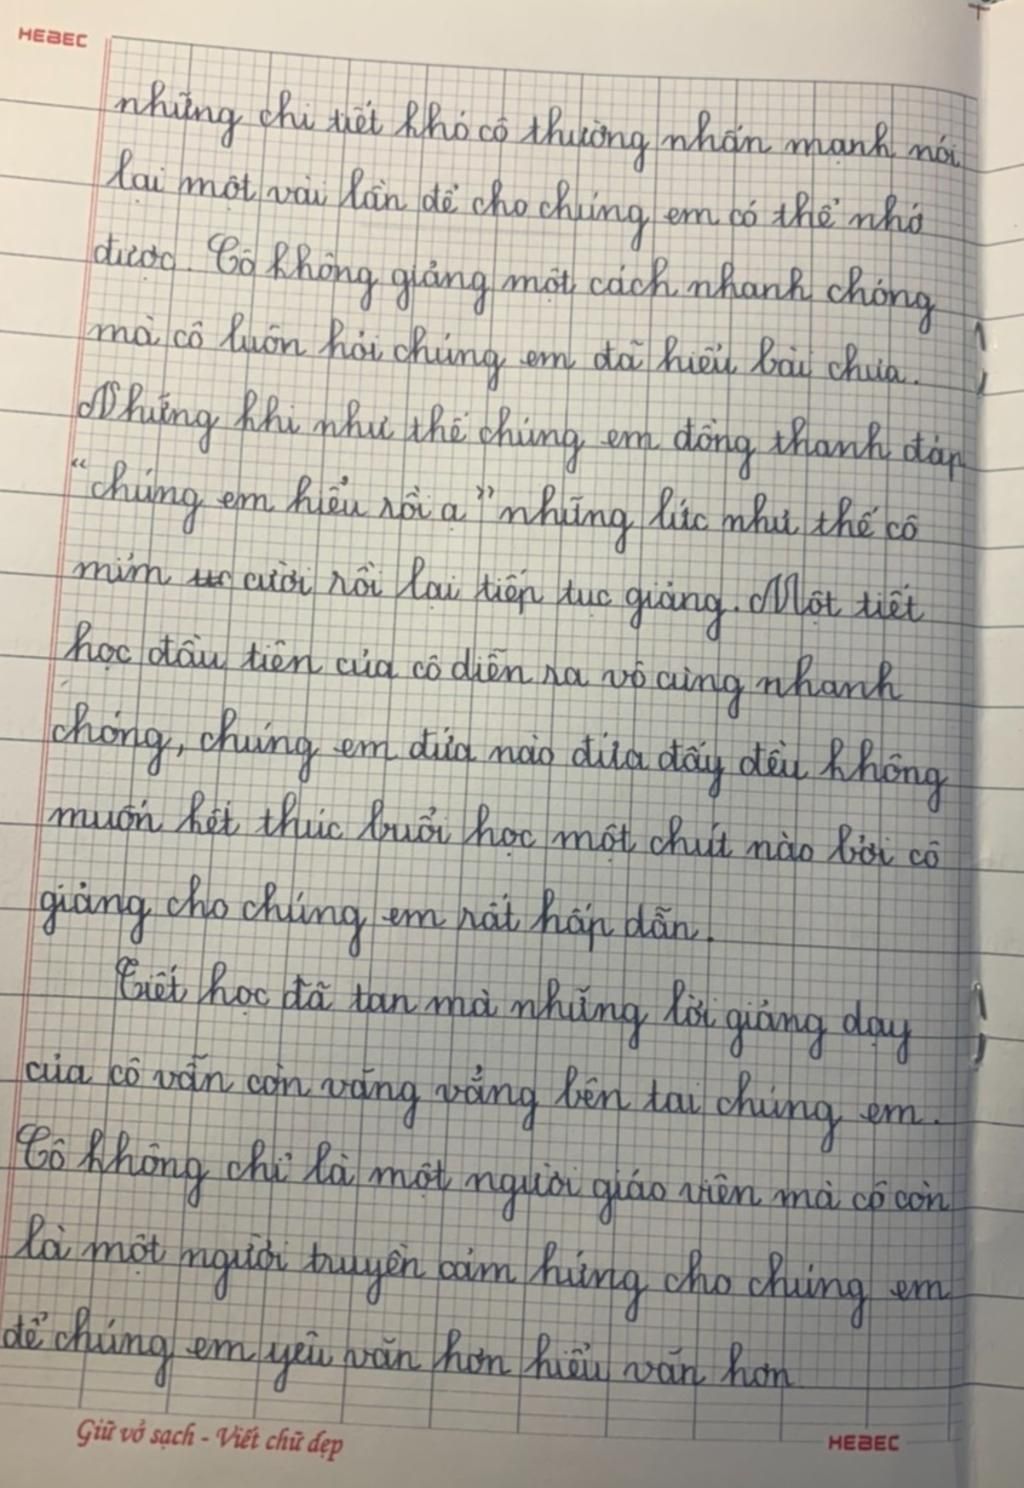 HEBEC
những chi tiết khó cô thường nhấn mạnh nói
lại một vài lần để cho chúng em có thể nhớ
được. Cô không giảng một cách nhanh chóng
mà cô luôn hỏi chúng em đã hiểu bài chưa.
Những khi như thế chúng em đồng thanh đáp
"chúng em hiểu rồi ạ" những lúc như thế cô
mỉm cười rồi lại tiếp tục giảng. Một tiết
học đầu tiên của cô diễn ra vô cùng nhanh
chóng, chúng em đứa nào đứa đấy đều không
muốn kết thúc buổi học một chút nào bởi cô
giảng cho chúng em rất hấp dẫn.
Tiết học đã tan mà những lời giảng dạy
của cô vẫn còn văng vẳng bên tai chúng em.
Cô không chỉ là một người giáo viên mà cô còn
là một người truyền cảm hứng cho chúng em
để chúng em yêu văn hơn hiểu văn hơn
Giữ vở sạch - Viết chữ đẹp
HEBEC